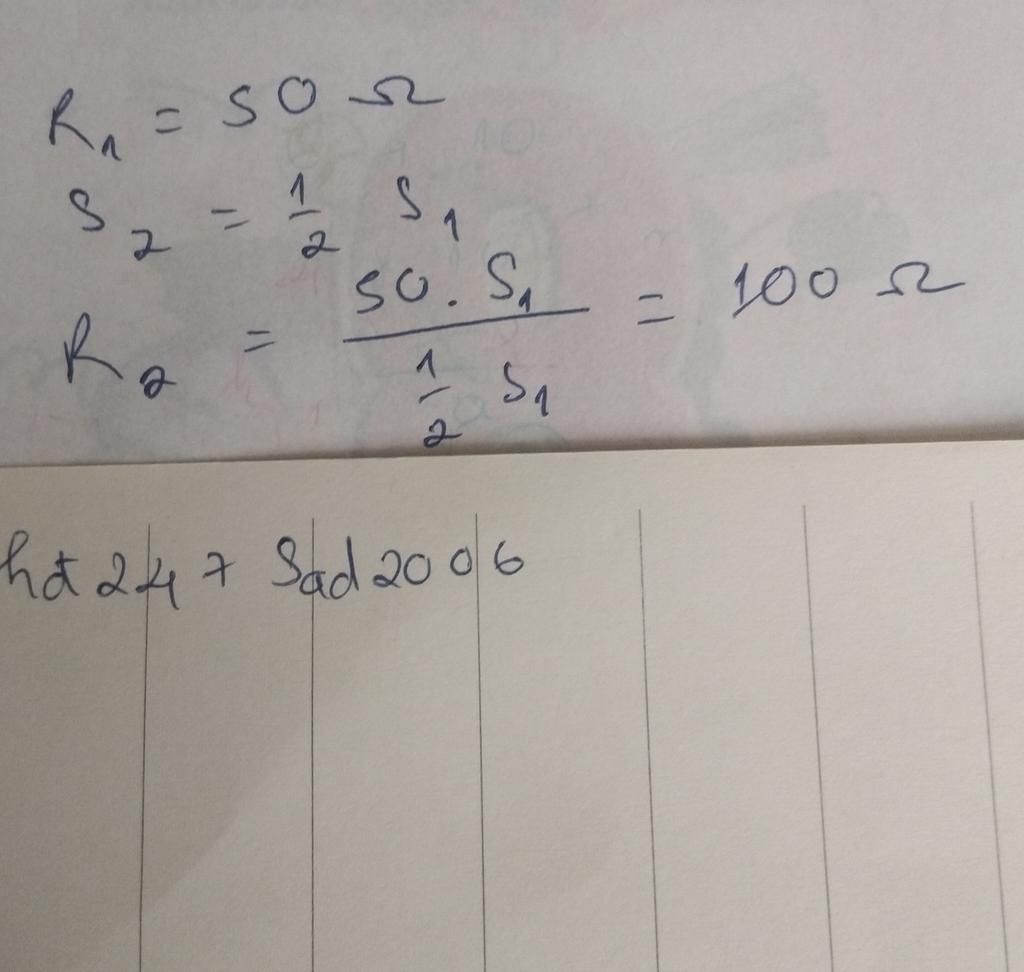 R₁ = 50 Ω
S₂ = 1/2 S₁
R₂ = (50 . S₁)/(1/2 S₁) = 100 Ω
hđ247 Sad2006